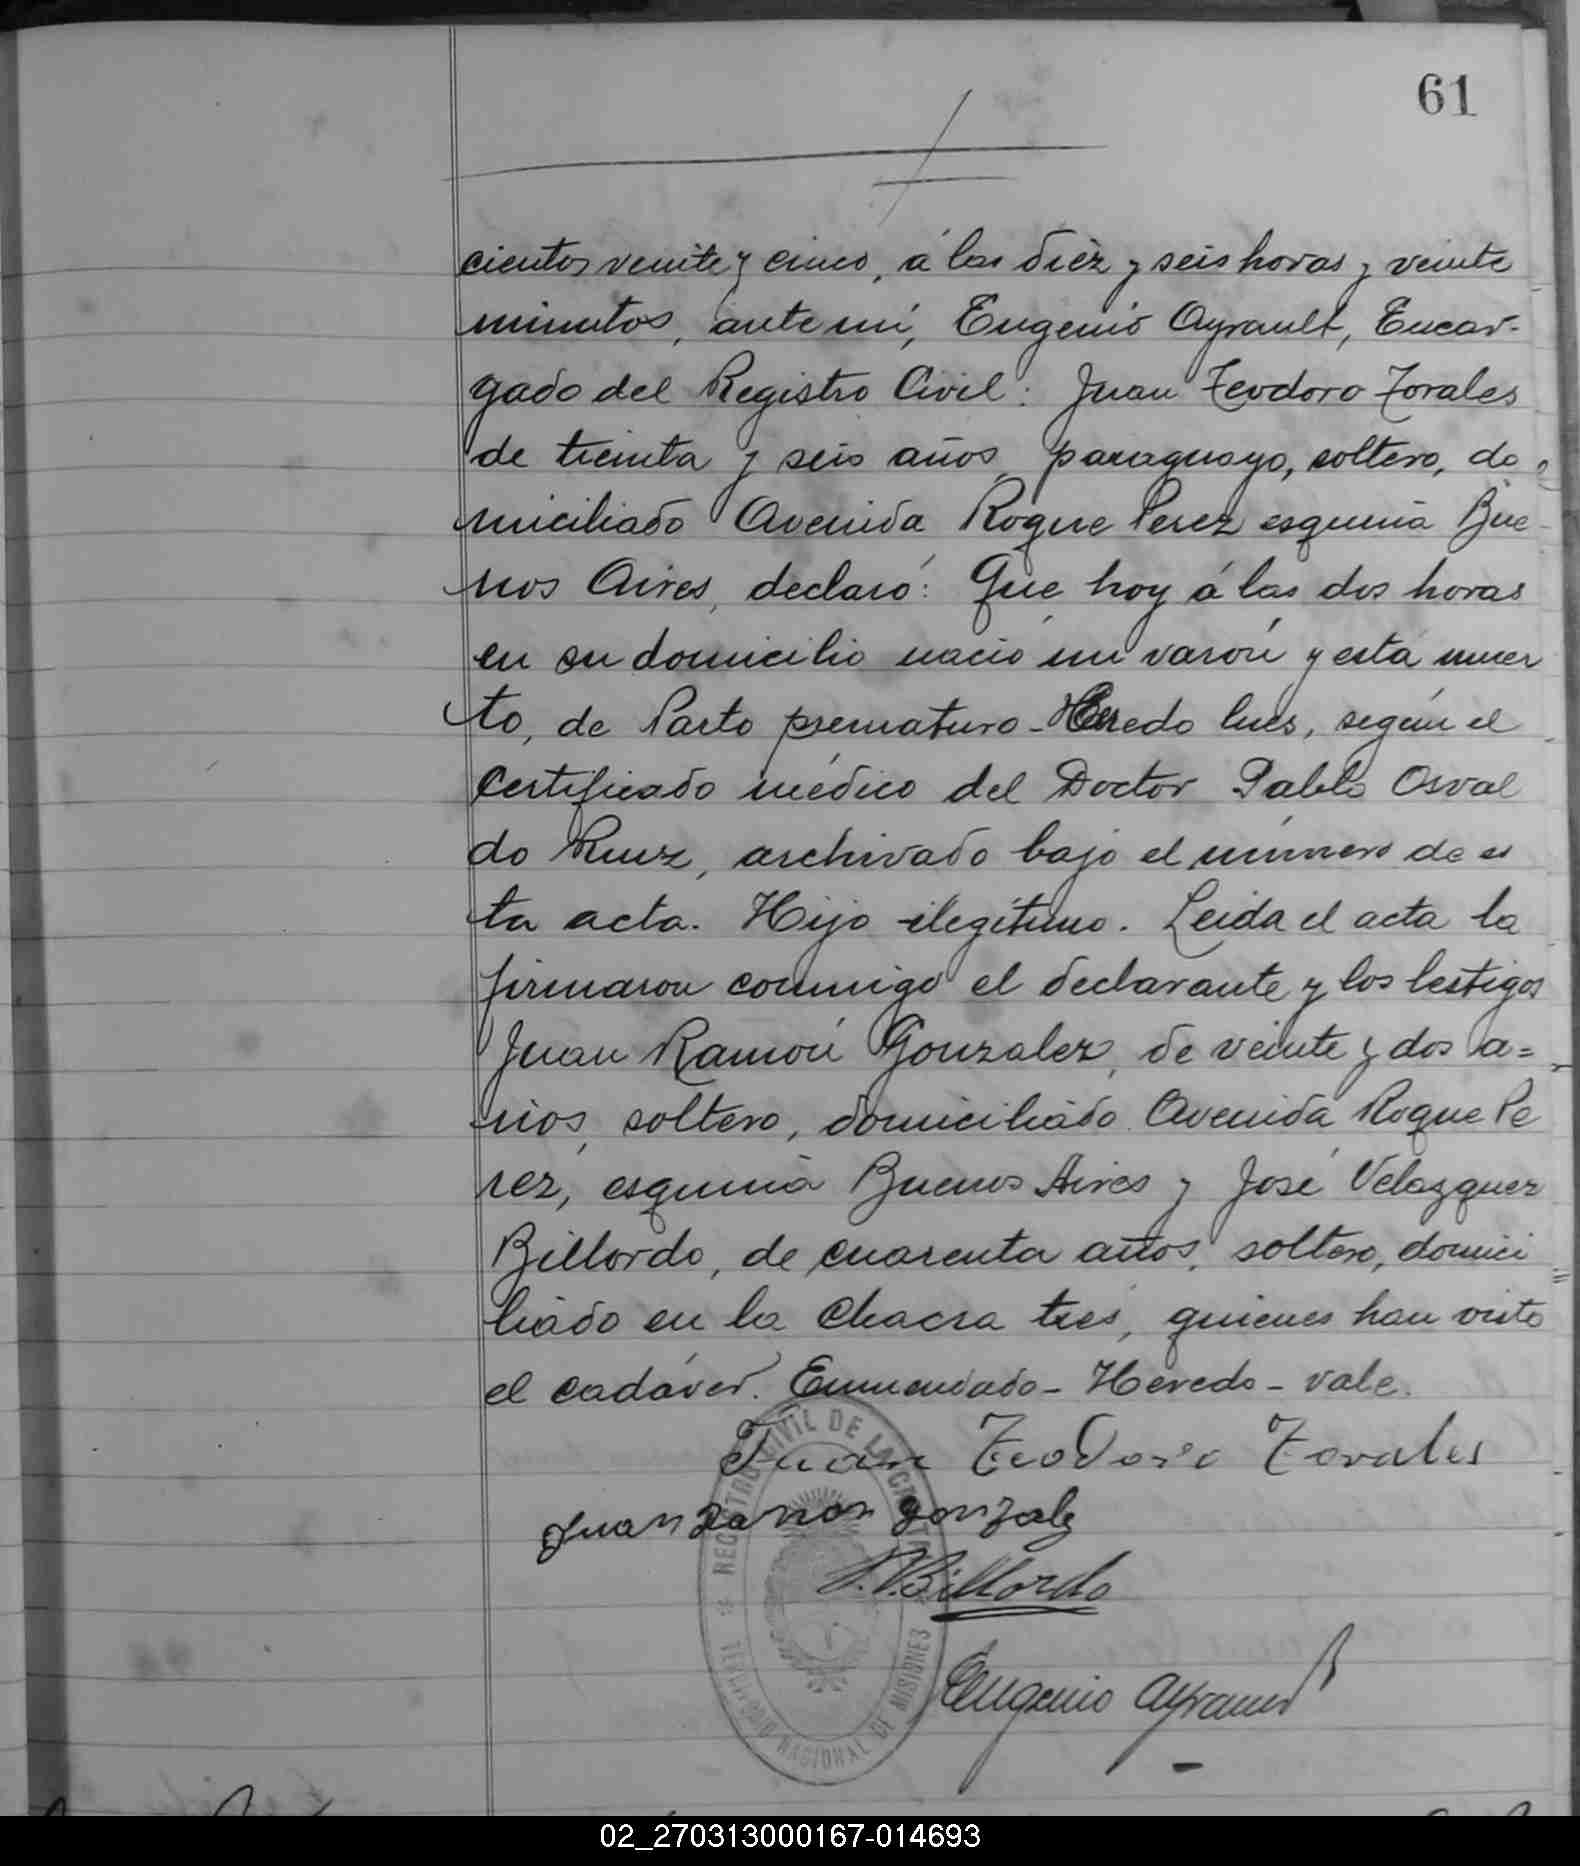 61
cientos veinte y cinco, á las diez y seis horas y veinte
minutos, ante mí, Eugenio Ayrault, Encar-
gado del Registro Civil: Juan Teodoro Torales
de treinta y seis años, paraguayo, soltero, do
miciliado Avenida Roque Perez esquina Bue-
nos Aires, declaró: Que hoy á las dos horas
en su domicilio nació un varón y está muer
to, de Parto prematuro - Heredo lues, según el
certificado médico del Doctor Pablo Osval
do Ruiz, archivado bajo el número de es
ta acta. Hijo ilegítimo. Leida el acta la
firmaron conmigo el declarante y los testigos
Juan Ramón Gonzalez, de veinte y dos a=
ños, soltero, domiciliado Avenida Roque Pe
rez, esquina Buenos Aires y José Velazquez
Billordo, de cuarenta años, soltero, domici
liado en la Chacra tres, quienes han visto
el cadáver. Enmendado - Heredo - vale.
Juan Teodoro Torales
Juan Ramon Gonzalez
J. V. Billordo
Eugenio Ayrault
REGISTRO CIVIL DE LA CAPITAL
TERRITORIO NACIONAL DE MISIONES
02_270313000167-014693